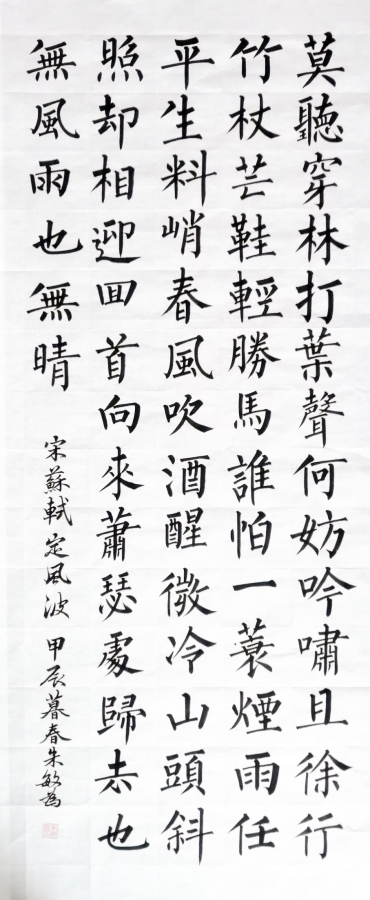 莫聽穿林打葉聲何妨吟嘯且徐行
竹杖芒鞋輕勝馬誰怕一蓑煙雨任
平生料峭春風吹酒醒微冷山頭斜
照却相迎回首向來蕭瑟處歸去也
無風雨也無晴
宋蘇軾定風波 甲辰暮春朱敏為